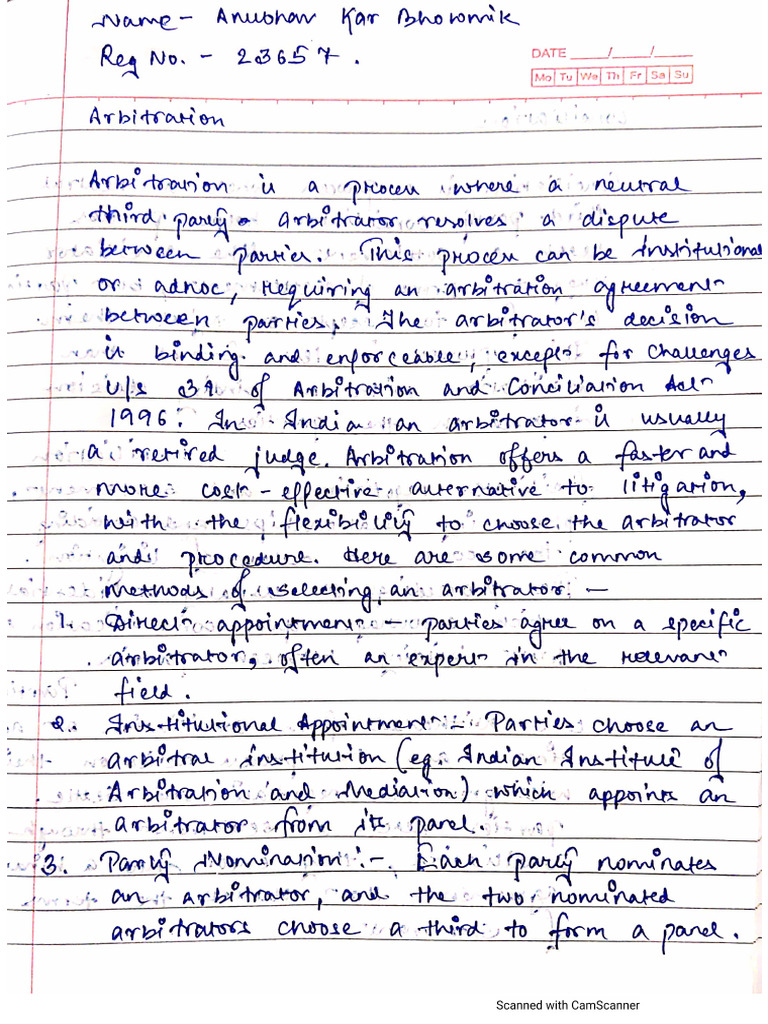 Name - Anubhav Kar Bhowmik
Reg No. - 23657.
DATE ___/___/___
Mo Tu We Th Fr Sa Su
Arbitration
Arbitration is a process where a neutral
third party - arbitrator resolves a dispute
between parties. This process can be institutional
or adhoc, requiring an arbitration agreement
between parties. The arbitrator's decision
is binding and enforceable, except for challenges
u/s 34 of Arbitration and Conciliation Act
1996. In India an arbitrator is usually
a retired judge. Arbitration offers a faster and
more cost-effective alternative to litigation,
with the flexibility to choose the arbitrator
and procedure. Here are some common
methods of selecting an arbitrator : -
1. Direct appointment - parties agree on a specific
arbitrator, often an expert in the relevant
field.
2. Institutional Appointment :- Parties choose an
arbitral institution (eg. Indian Institute of
Arbitration and Mediation) which appoints an
arbitrator from its panel.
3. Party Nomination :- Each party nominates
an arbitrator, and the two nominated
arbitrators choose a third to form a panel.
Scanned with CamScanner